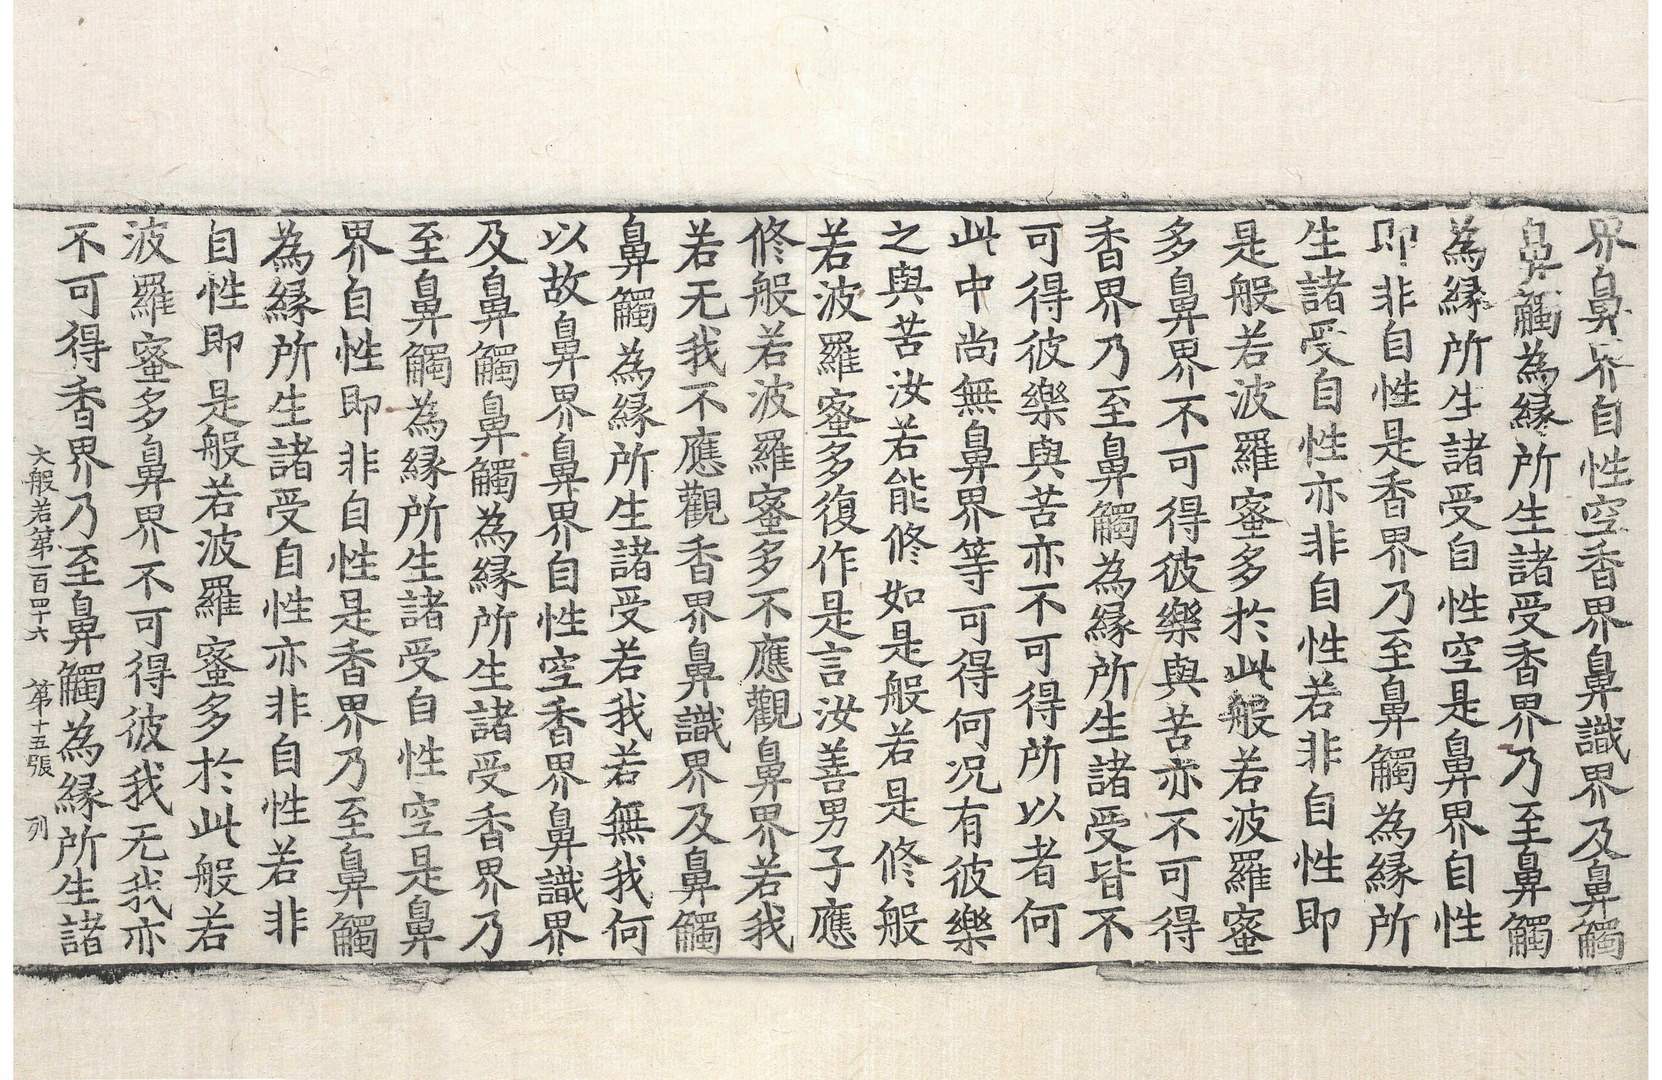 界鼻界自性空香界鼻識界及鼻觸
鼻觸為縁所生諸受香界乃至鼻觸
為縁所生諸受自性空是鼻界自性
即非自性是香界乃至鼻觸為縁所
生諸受自性亦非自性若非自性即
是般若波羅蜜多於此般若波羅蜜
多鼻界不可得彼樂與苦亦不可得
香界乃至鼻觸為縁所生諸受皆不
可得彼樂與苦亦不可得所以者何
此中尚無鼻界等可得何况有彼樂
之與苦汝若能修如是般若是修般
若波羅蜜多復作是言汝善男子應
修般若波羅蜜多不應觀鼻界若我
若无我不應觀香界鼻識界及鼻觸
鼻觸為縁所生諸受若我若無我何
以故鼻界鼻界自性空香界鼻識界
及鼻觸鼻觸為縁所生諸受香界乃
至鼻觸為縁所生諸受自性空是鼻
界自性即非自性是香界乃至鼻觸
為縁所生諸受自性亦非自性若非
自性即是般若波羅蜜多於此般若
波羅蜜多鼻界不可得彼我无我亦
不可得香界乃至鼻觸為縁所生諸
大般若第一百四十六 第十五張 列